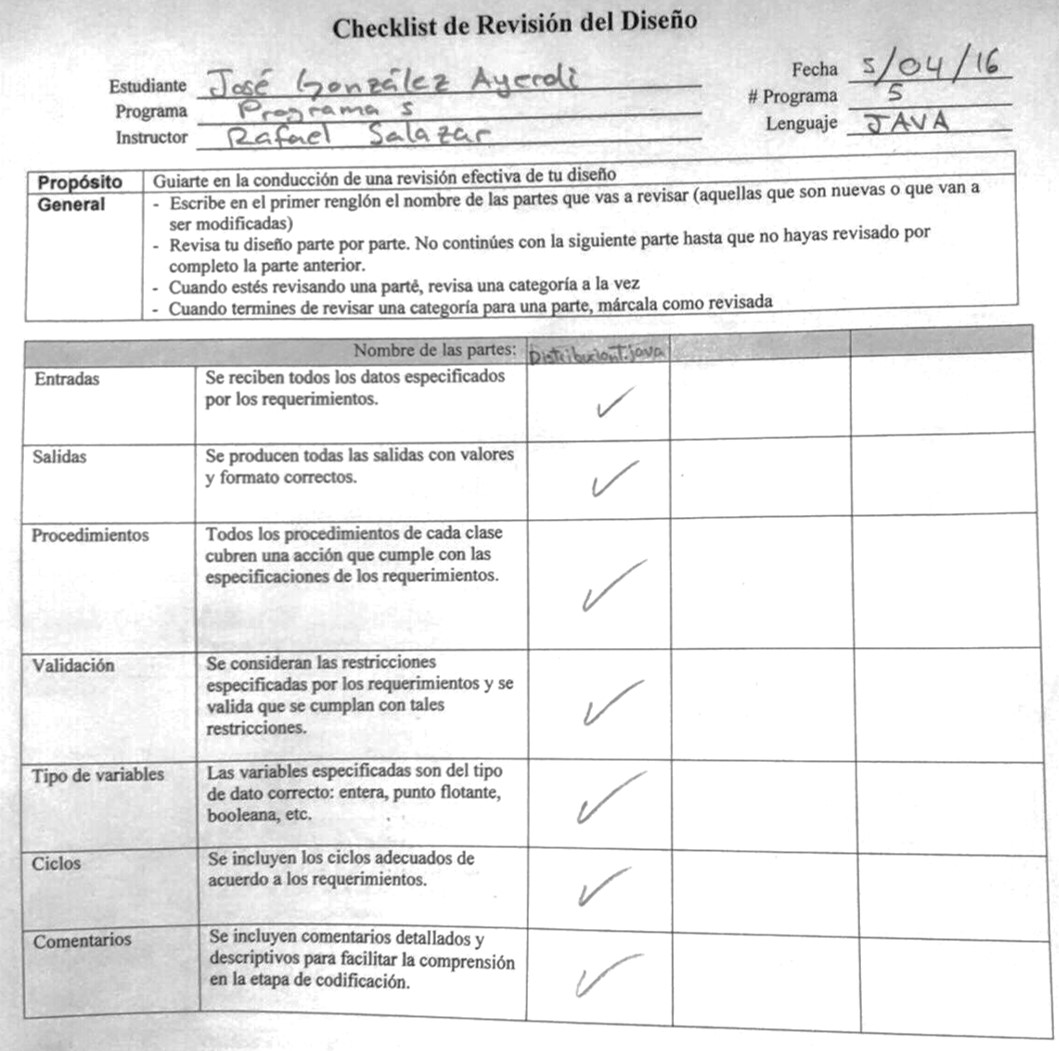 Checklist de Revisión del Diseño
Estudiante José González Ayerdi
Fecha 5/04/16
Programa Programa 5
# Programa 5
Instructor Rafael Salazar
Lenguaje JAVA
Propósito Guiarte en la conducción de una revisión efectiva de tu diseño
General - Escribe en el primer renglón el nombre de las partes que vas a revisar (aquellas que son nuevas o que van a
ser modificadas)
- Revisa tu diseño parte por parte. No continúes con la siguiente parte hasta que no hayas revisado por
completo la parte anterior.
- Cuando estés revisando una parte, revisa una categoría a la vez
- Cuando termines de revisar una categoría para una parte, márcala como revisada
Nombre de las partes: DistribucionT.java
Entradas Se reciben todos los datos especificados
por los requerimientos. ✓
Salidas Se producen todas las salidas con valores
y formato correctos. ✓
Procedimientos Todos los procedimientos de cada clase
cubren una acción que cumple con las
especificaciones de los requerimientos. ✓
Validación Se consideran las restricciones
especificadas por los requerimientos y se
valida que se cumplan con tales
restricciones. ✓
Tipo de variables Las variables especificadas son del tipo
de dato correcto: entera, punto flotante,
booleana, etc. ✓
Ciclos Se incluyen los ciclos adecuados de
acuerdo a los requerimientos. ✓
Comentarios Se incluyen comentarios detallados y
descriptivos para facilitar la comprensión
en la etapa de codificación. ✓